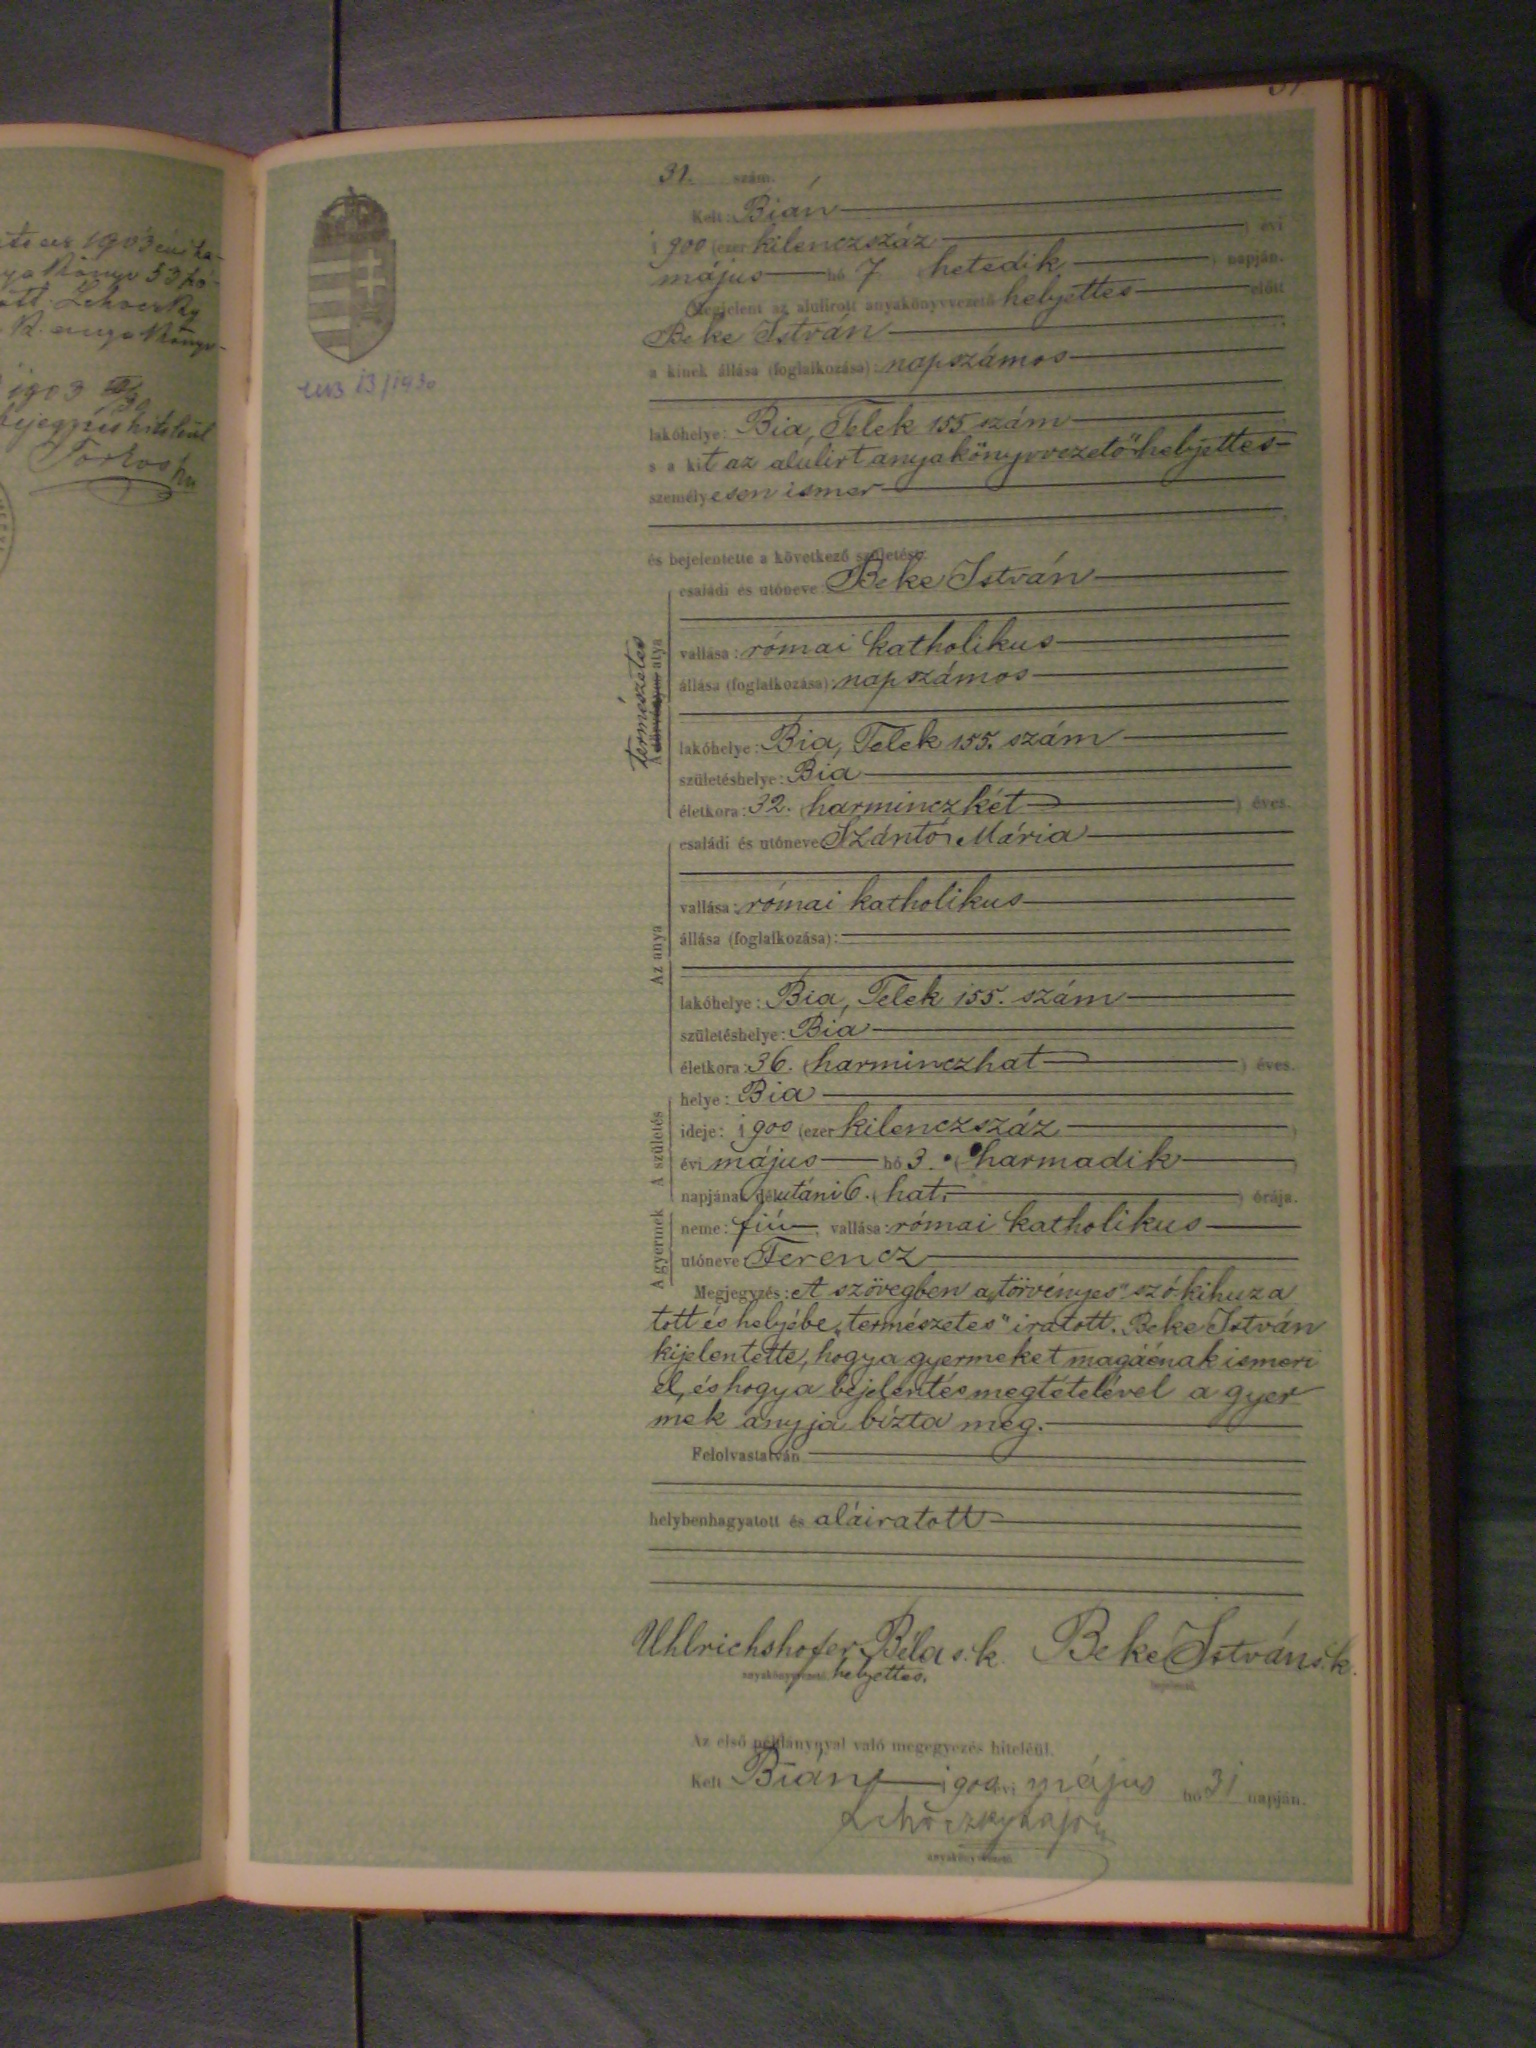 1903
nya Könyv 53
1903
Torkos
31. szám.
Kelt: Bián
1900 (ezer kilenczszáz ) évi
május hó 7 (hetedik ) napján.
Megjelent az alulirott anyakönyvvezető helyettes előtt
Beke István
a kinek állása (foglalkozása): napszámos
lakóhelye: Bia, Telek 155 szám
s a kit az alulirt anyakönyvvezető helyettes
személyesen ismer
és bejelentette a következő születést:
A törvényes atya
természetes
családi és utóneve: Beke István
vallása: római katholikus
állása (foglalkozása): napszámos
lakóhelye: Bia, Telek 155. szám
születéshelye: Bia
életkora: 32. (harminczkét ) éves.
Az anya
családi és utóneve Szántó Mária
vallása: római katholikus
állása (foglalkozása):
lakóhelye: Bia, Telek 155. szám
születéshelye: Bia
életkora: 36. (harminczhat ) éves.
A születés
helye: Bia
ideje: 1900 (ezer kilenczszáz )
évi május hó 3. (harmadik )
napjának délutáni 6. (hat ) órája.
A gyermek
neme: fiú, vallása: római katholikus
utóneve: Ferencz
Megjegyzés: A szövegben a „törvényes" szó kihuza
tott és helyébe „természetes" iratott. Beke István
kijelentette, hogy a gyermeket magáénak ismeri
el, és hogy a bejelentés megtételével a gyer
mek anyja bizta meg.
Felolvastatván
helybenhagyatott és aláiratott
Uhlrichshofer Béla s.k. Beke István s.k.
anyakönyvvezető helyettes. bejelentő.
Az első példánynyal való megegyezés hiteléül.
Kelt Bián, 1900 évi május hó 31 napján.
Lehoczky Lajos
anyakönyvvezető.